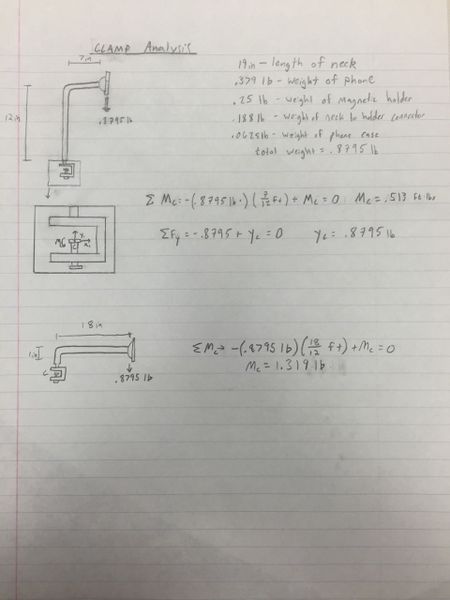 CLAMP Analysis
7in
19in - length of neck
.379 lb - weight of phone
.25 lb - weight of magnetic holder
.188 lb - weight of neck to holder connector
.0625lb - weight of phone case
total weight = .8795 lb
.8795 lb
12in
Σ Mc = -(.8795 lb)(7/12 ft) + Mc = 0 Mc = .513 ft·lbs
ΣFy = -.8795 + yc = 0 yc = .8795 lb
Mc
18in
1in
C
.8795 lb
ΣMc → -(.8795 lb)(18/12 ft) + Mc = 0
Mc = 1.319 lb